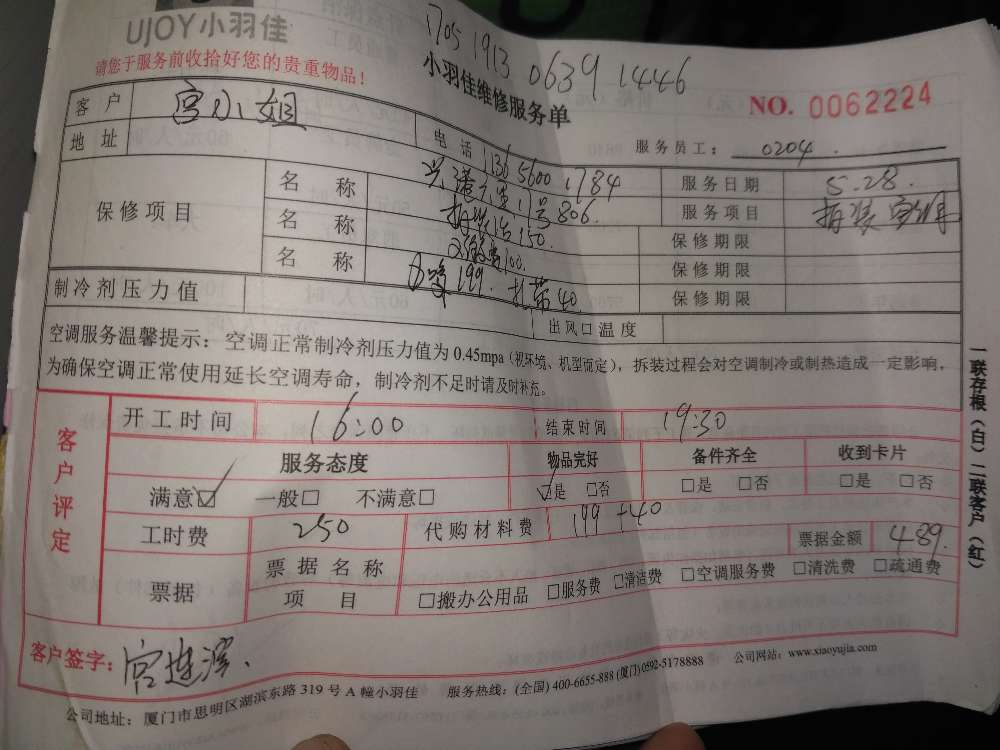 UJOY小羽佳
请您于服务前收拾好您的贵重物品！
1705 1913 0639 1446
小羽佳维修服务单
NO. 0062224
客户 宫小姐 电话 1136 5600 1784 服务员工： 0204
地址 1号806. 服务日期 5.28.
保修项目 名称 150. 服务项目 拆装空调
名称 100. 保修期限
名称 199. 扎带40 保修期限
保修期限
制冷剂压力值 出风口温度
空调服务温馨提示：空调正常制冷剂压力值为0.45mpa（视环境、机型而定），拆装过程会对空调制冷或制热造成一定影响，
为确保空调正常使用延长空调寿命，制冷剂不足时请及时补充。
客户评定
开工时间 16:00 结束时间 19:30
服务态度 物品完好 备件齐全 收到卡片
满意☑ 一般□ 不满意□ ☑是 □否 □是 □否 □是 □否
工时费 250 代购材料费 199+40 票据金额 489.
票据 票据名称
项目 □搬办公用品 □服务费 □清洁费 □空调服务费 □清洗费 □疏通费
客户签字：宫连滨.
公司地址：厦门市思明区湖滨东路319号A幢小羽佳 服务热线：(全国) 400-6655-888 (厦门) 0592-5178888 公司网站：www.xiaoyujia.com
一联存根（白）二联客户（红）